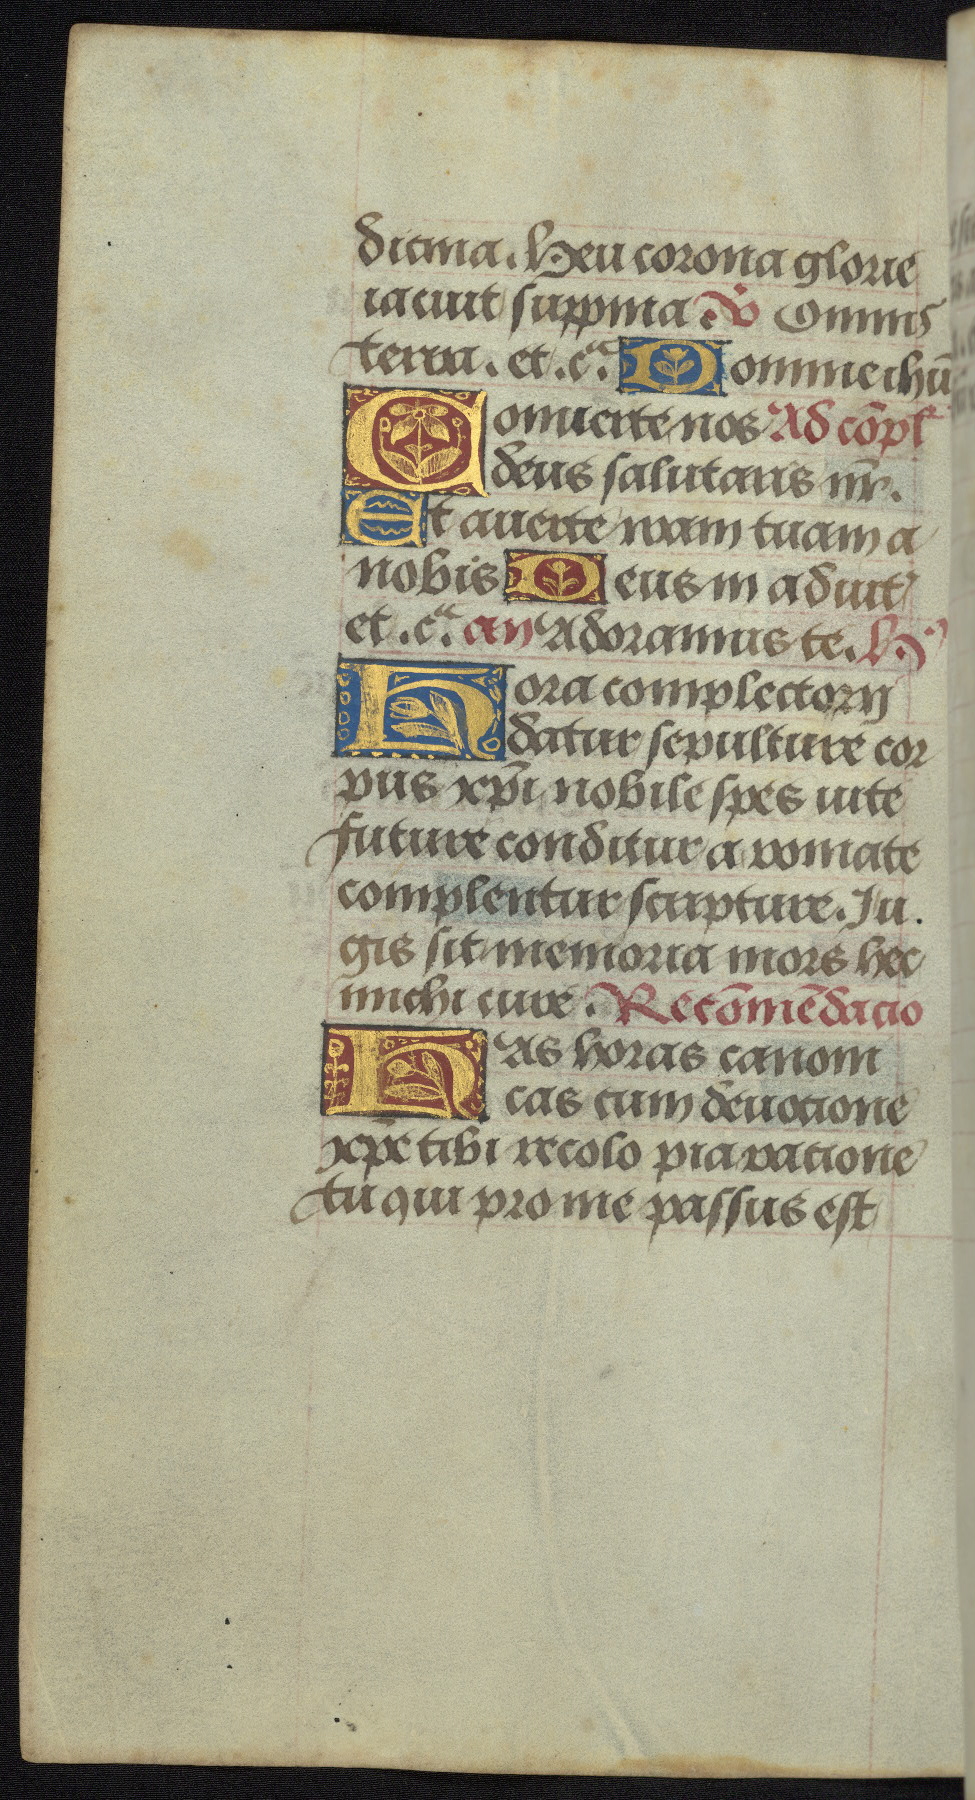 dicina. Heu corona glorie
iacuit suppina. V Omnis
terra. et .cͣ. Domine ihū
Conuerte nos Ad cōpl
deus salutaris nr̄.
Et auerte iram tuam a
nobis Deus in adiut
et .cͣ. an Adoramus te. H
Hora completorij
datur sepulture cor
pus xp̄i nobile spes uite
future conditur aromate
complentur scripture. Iu.
gis sit memoria mors hec
michi cure. Recōmēdacio
Has horas canoni
cas cum deuotione
xp̄e tibi recolo pia ratione
tu qui pro me passus est